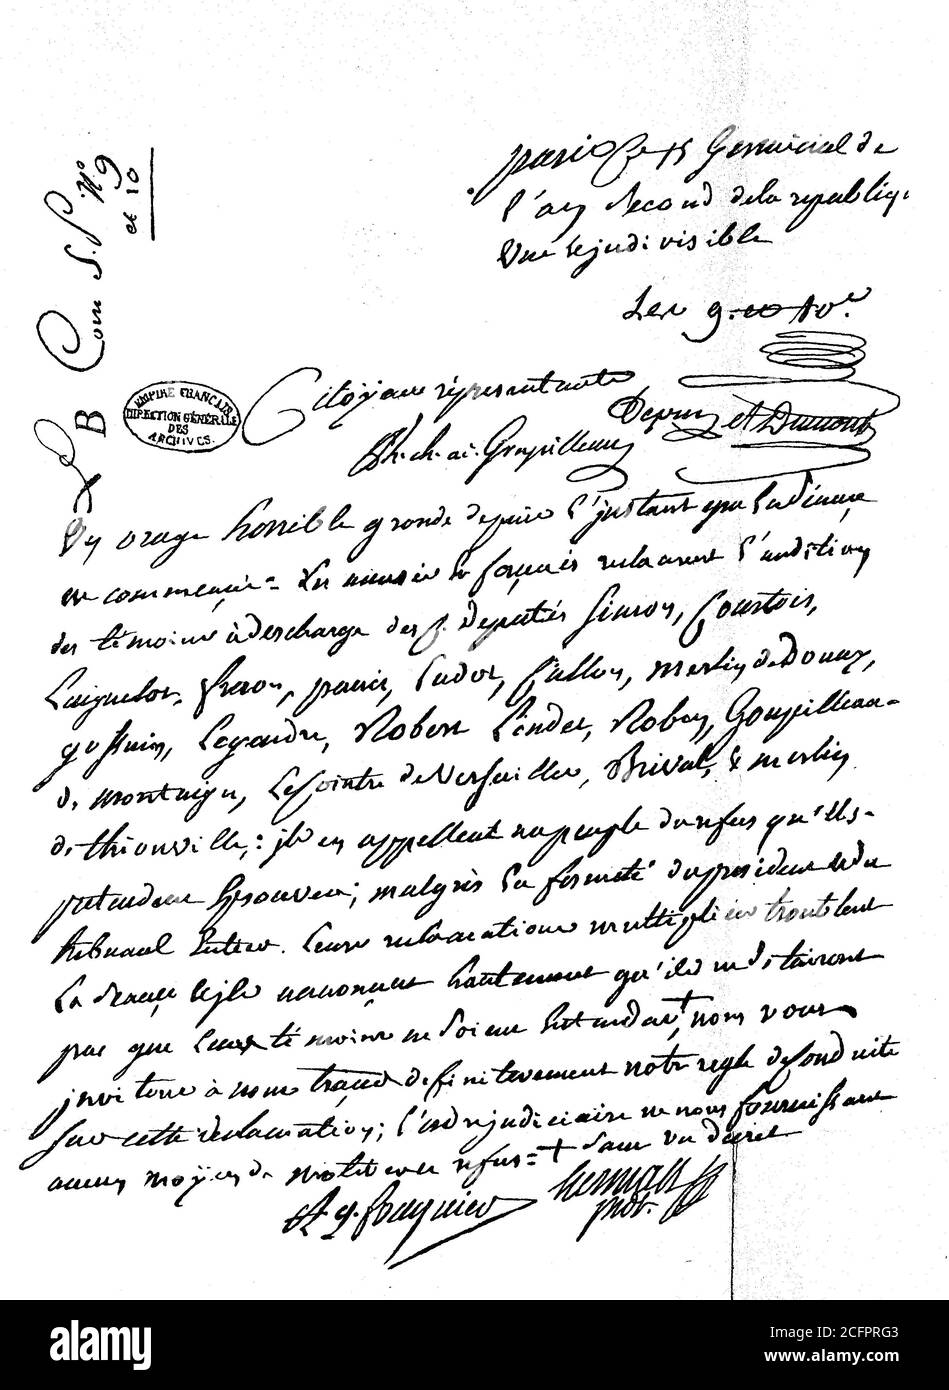 paris ce 15 Germinal de
l'an second de la republiq
une & indivisible
Com S. P. N.º 9
et 10
B
EMPIRE FRANÇAIS
DIRECTION GÉNÉRALE
DES
ARCHIVES.
Citoyens réprésentants
et Dumont
Ph. ch. ai. Goupilleau
un orage horrible gronde depuis l'instant que la séance
est commencée = les accusés en forcenés reclament l'audition
des témoins à descharge des C. deputés Simon, Courtois,
Laignelot, freron, panis, Ludot, Callon, merlin de Douay,
gossuin, Legendre, Robert Lindet, Robin, Goupilleau-
de montaigu, Le Cointre de Versailles, Brival, & merlin
de thionville; ils en appellent au peuple du refus qu'ils-
prétendent éprouver; malgrès la fermeté du président & du
tribunal entier. leurs reclamations multipliées troublent
la séance & ils annoncent hautement qu'ils ne se tairont
pas que leurs témoins ne soient entendus, nous vous
invitons à nous tracer definitivement notre regle de Conduite
sur cette reclamation; l'ordre judiciaire ne nous fournissant
aucun moyen de motiver ce refus = + sans un decret
A. q. fouquier
herman
pndt.
alamy
Image ID: 2CFPRG3
www.alamy.com